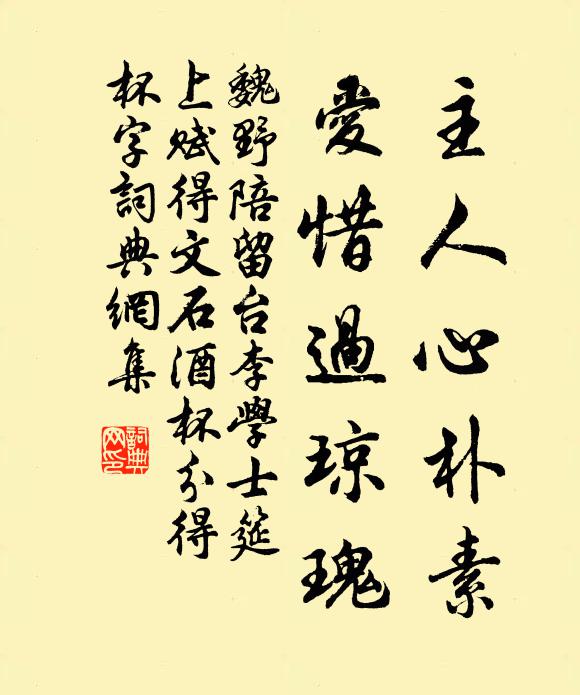 主人心朴素
愛惜過琼瑰
魏野陪留台李學士筵
上赋得文石酒杯分得
杯字詞典網集
詞典
网印